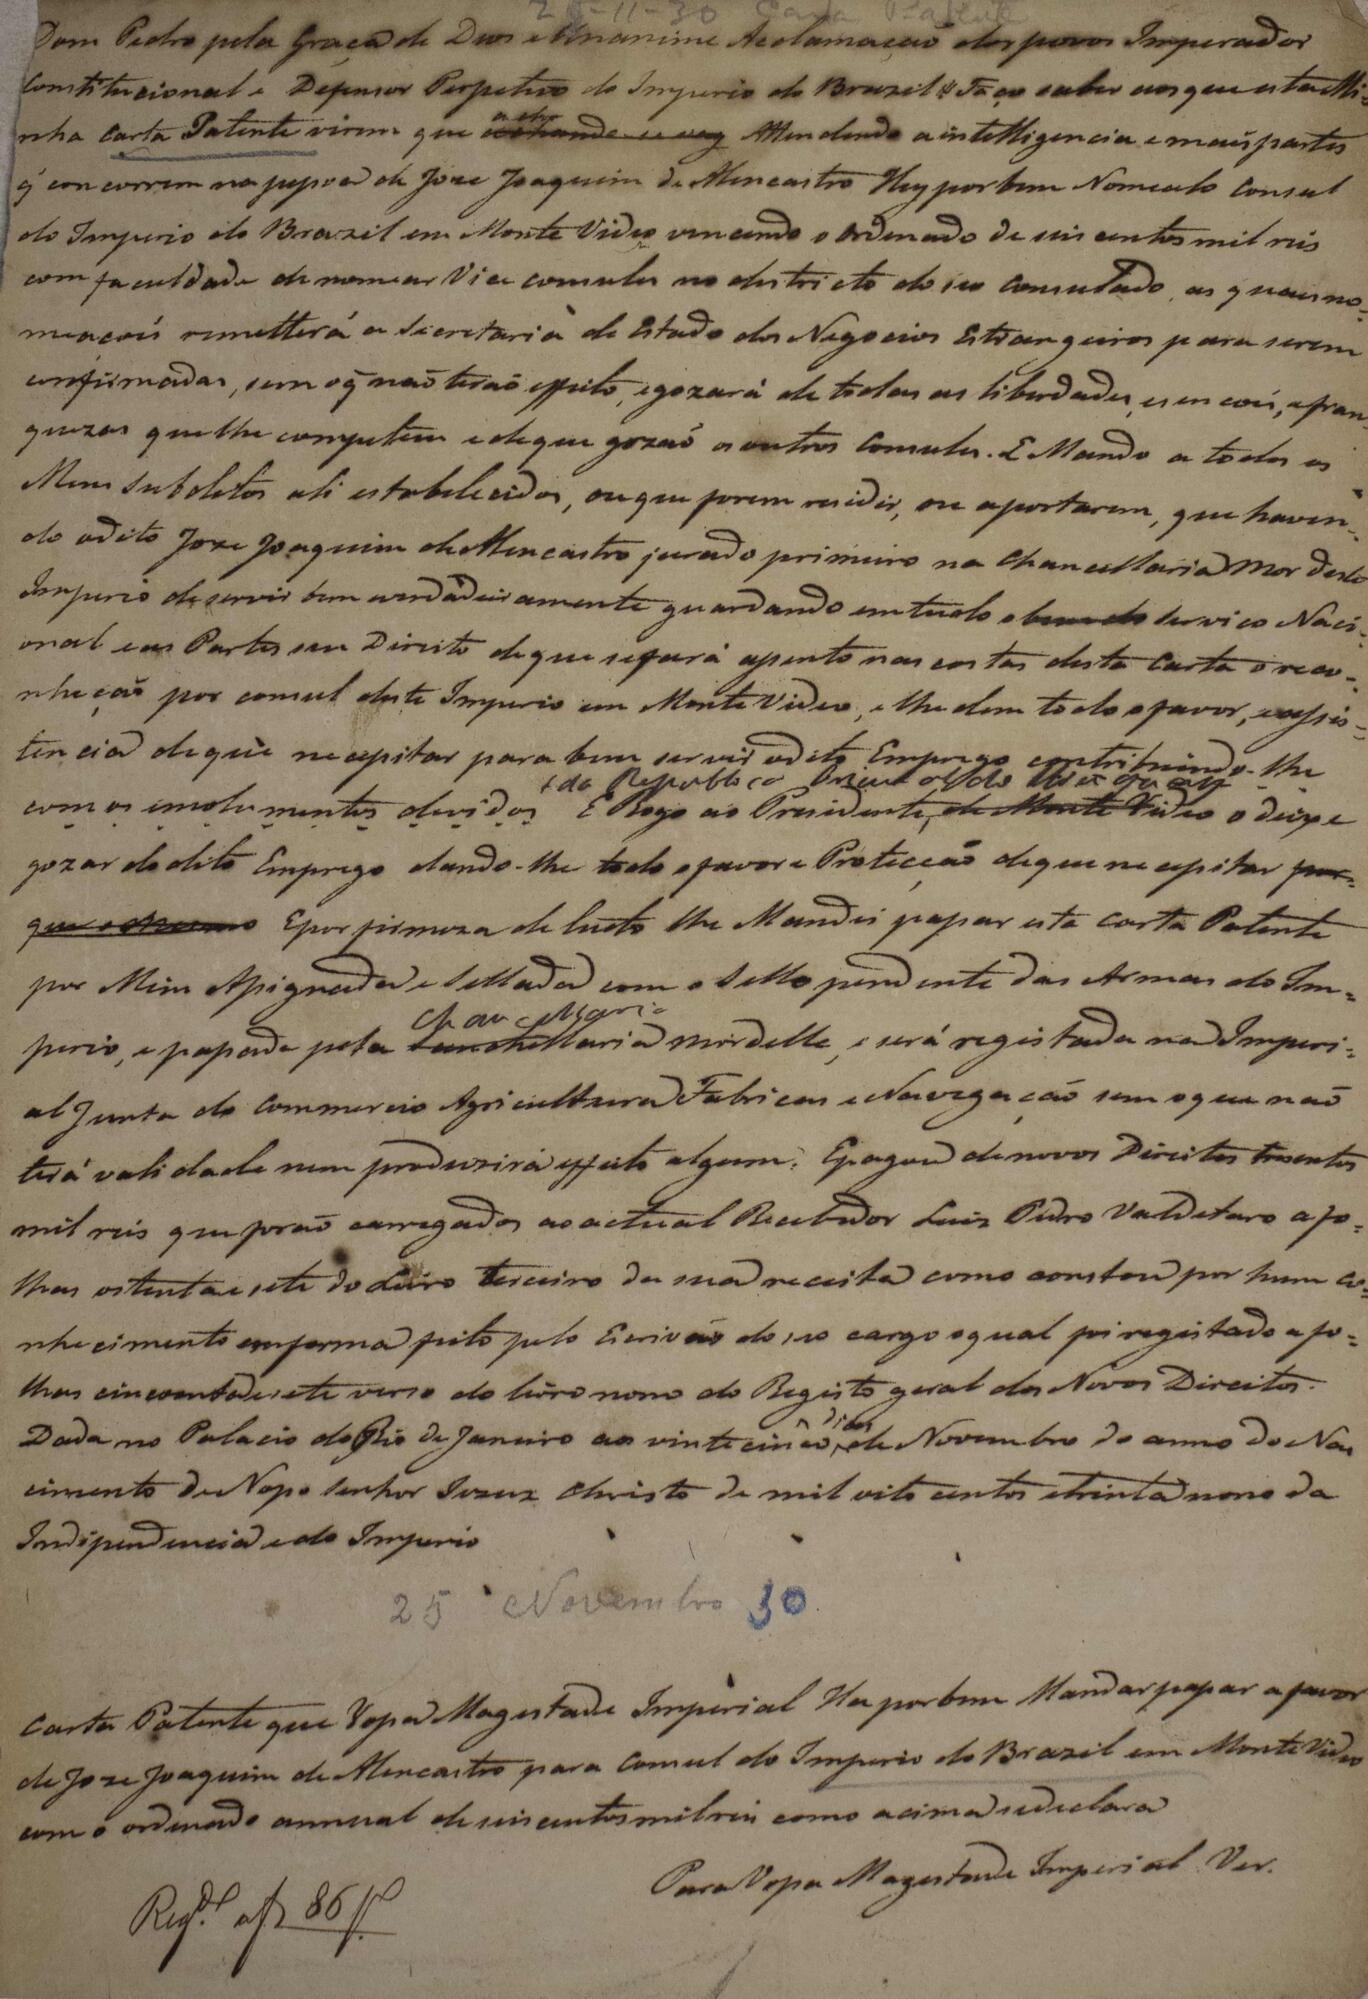 25-11-30 Carta Patente
Dom Pedro pela Graça de Deos e Unanime Acclamação dos povos Imperador
Constitucional e Defensor Perpetuo do Imperio do Brazil Faço saber aos que esta Mi-
nha Carta Patente virem que Attendendo a intelligencia e mais partes
q̃ concorrem na pessoa de Joze Joaquim de Alencastro Hey por bem Nomealo Consul
do Imperio do Brazil em Monte Video vencendo o Ordenado de seis centos mil reis
com faculdade de nomear Vice consules no destricto do seo Consulado, as quaes no-
meações remetterá a Secretaria de Estado dos Negocios Estrangeiros para serem
confirmadas, sem o q̃ não terão effeito, e gozará de todas as liberdades, esençoes, e fran-
quezas que lhe competem e de que gozaõ os outros Consules. E Mando a todos os
Meus Subditos ali estabelecidos, ou que forem residir, ou aportarem, que haven-
do o dito Joze Joaquim de Alencastro jurado primeiro na Chancellaria Mor deste
Imperio de servir bem e verdadeiramente guardando em tudo o bem do Servico Naci-
onal e as Partes seu Direito de que se fará assento nas costas desta Carta o reco-
nheção por consul deste Imperio em Monte Video, e lhe dem todo o favor, e assis-
tencia de que necessitar para bem servir o dito Emprego contribuindo-lhe
da Republica Oriental do Uruguay
com os emolumentos devidos E Rogo ao Presidente, de Monte Video o deixe
gozar do dito Emprego dando-lhe todo o favor e Protecção de que necessitar por-
que o mesmo E por firmeza de tudo lhe Mandei passar esta Carta Patente
por Mim Assignada e Sellada com o Sello pendente das Armas do Im-
Chancellaria
perio, e passada pela Chanchellaria mór delle, e será registada na Imperi-
al Junta do Commercio Agricultura Fabricas e Navegação sem o que não
terá validade nem produzirá effeito algum. E pagou de novos Direitos trezentos
mil reis que forão carregados ao actual Recebedor Luis Pedro Valdetaro a fo-
lhas oitenta e sete do Livro terceiro da sua receita como constou por hum co-
nhecimento em forma feito pelo Escrivão do seo cargo o qual foi registado a fo-
lhas cincoenta e sete verso do livro nono do Registo geral dos Novos Direitos.
dias
Dada no Palacio do Rio de Janeiro aos vinte cinco de Novembro do anno do Nas
cimento de Nosso Senhor Jezuz Christo de mil oito centos e trinta nono da
Independencia e do Imperio
25 Novembro 30.
Carta Patente que Vossa Magestade Imperial Ha por bem Mandar passar a favor
de Joze Joaquim de Alencastro para Consul do Imperio do Brazil em Monte Video
com o ordenado annual de seis centos mil reis como acima se declara
Para Vossa Magestade Imperial Ver.
Reg.do a f. 86